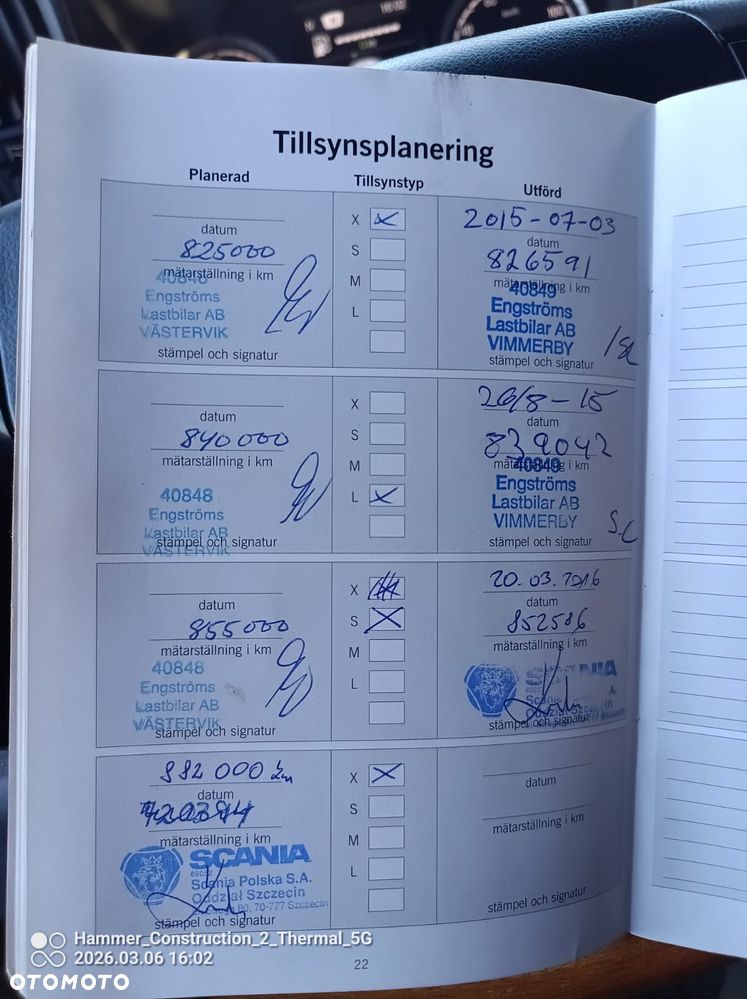 Tillsynsplanering
Planerad
Tillsynstyp
Utförd
datum
825000
mätarställning i km
40848
Engströms
Lastbilar AB
VÄSTERVIK
stämpel och signatur
X
S
M
L
2015-07-03
datum
826591
mätarställning i km
40849
Engströms
Lastbilar AB
VIMMERBY
stämpel och signatur
datum
840000
mätarställning i km
40848
Engströms
Lastbilar AB
VÄSTERVIK
stämpel och signatur
X
S
M
L
26/8-15
datum
839042
mätarställning i km
40849
Engströms
Lastbilar AB
VIMMERBY
stämpel och signatur
datum
855000
mätarställning i km
40848
Engströms
Lastbilar AB
VÄSTERVIK
stämpel och signatur
X
S
M
L
20.03.2016
datum
852586
mätarställning i km
SCANIA
Oddział Szczecin
stämpel och signatur
882 000 km
datum
mätarställning i km
SCANIA
Scania Polska S.A.
Oddział Szczecin
80, 70-777 Szczecin
stämpel och signatur
X
S
M
L
datum
mätarställning i km
stämpel och signatur
22
Hammer_Construction_2_Thermal_5G
2026.03.06 16:02
OTOMOTO